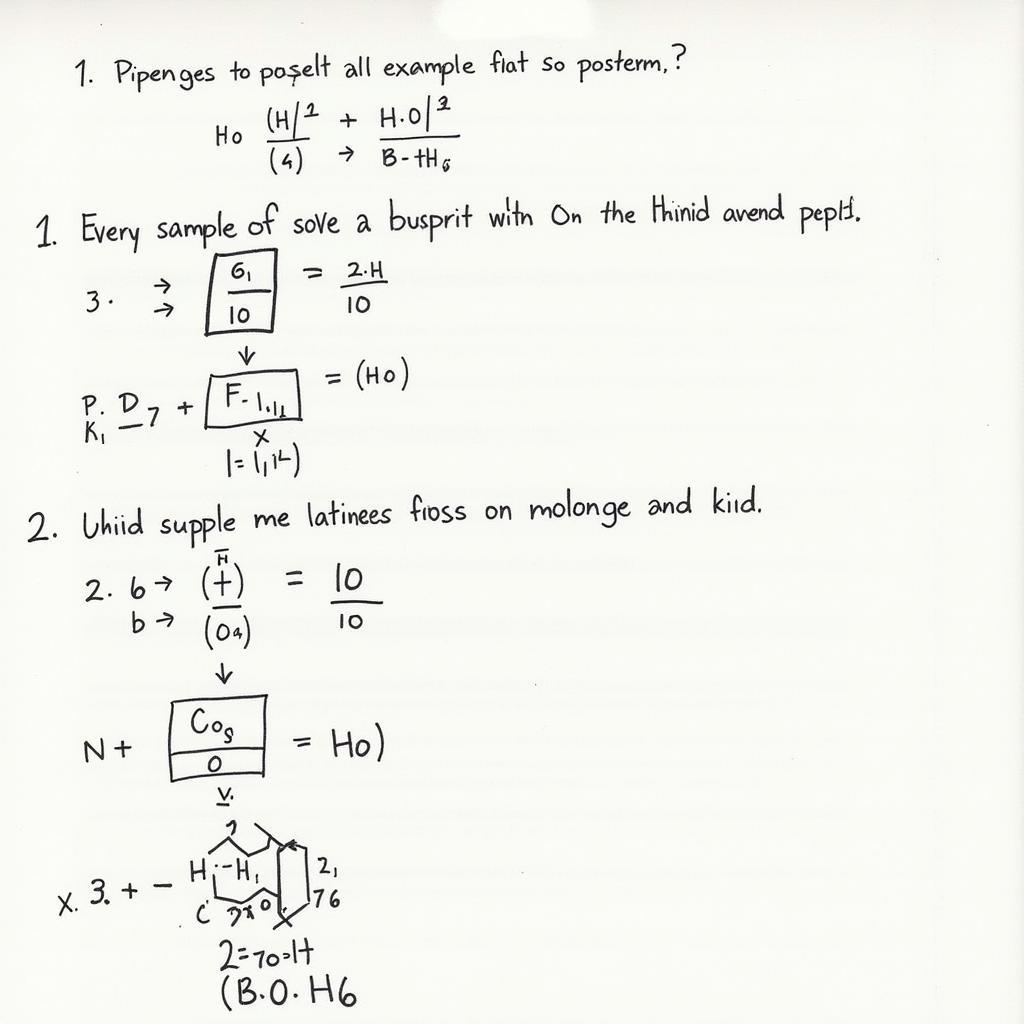 1. Pipenges to poşelt all example fiat so posterm,?
Ho (H/2 + H.O|2
(4) → B-tH6
1. Every sample of sove a busprit with On the thinid avend pepld.
3. → G1 = 2.H
→ 10 10
↓
P. D7 + F-1.11 = (Ho)
K1
x
1= (1,1L)
2. Uhiid supple me latinees fross on molonge and kiid.
2. 6→ (H +) = 10
b→ (O4) 10
↓
N+ Cos = Ho)
0
v.
x. 3. + - H:-H1 2,
C 76
2=70=1t
(B.O. H6